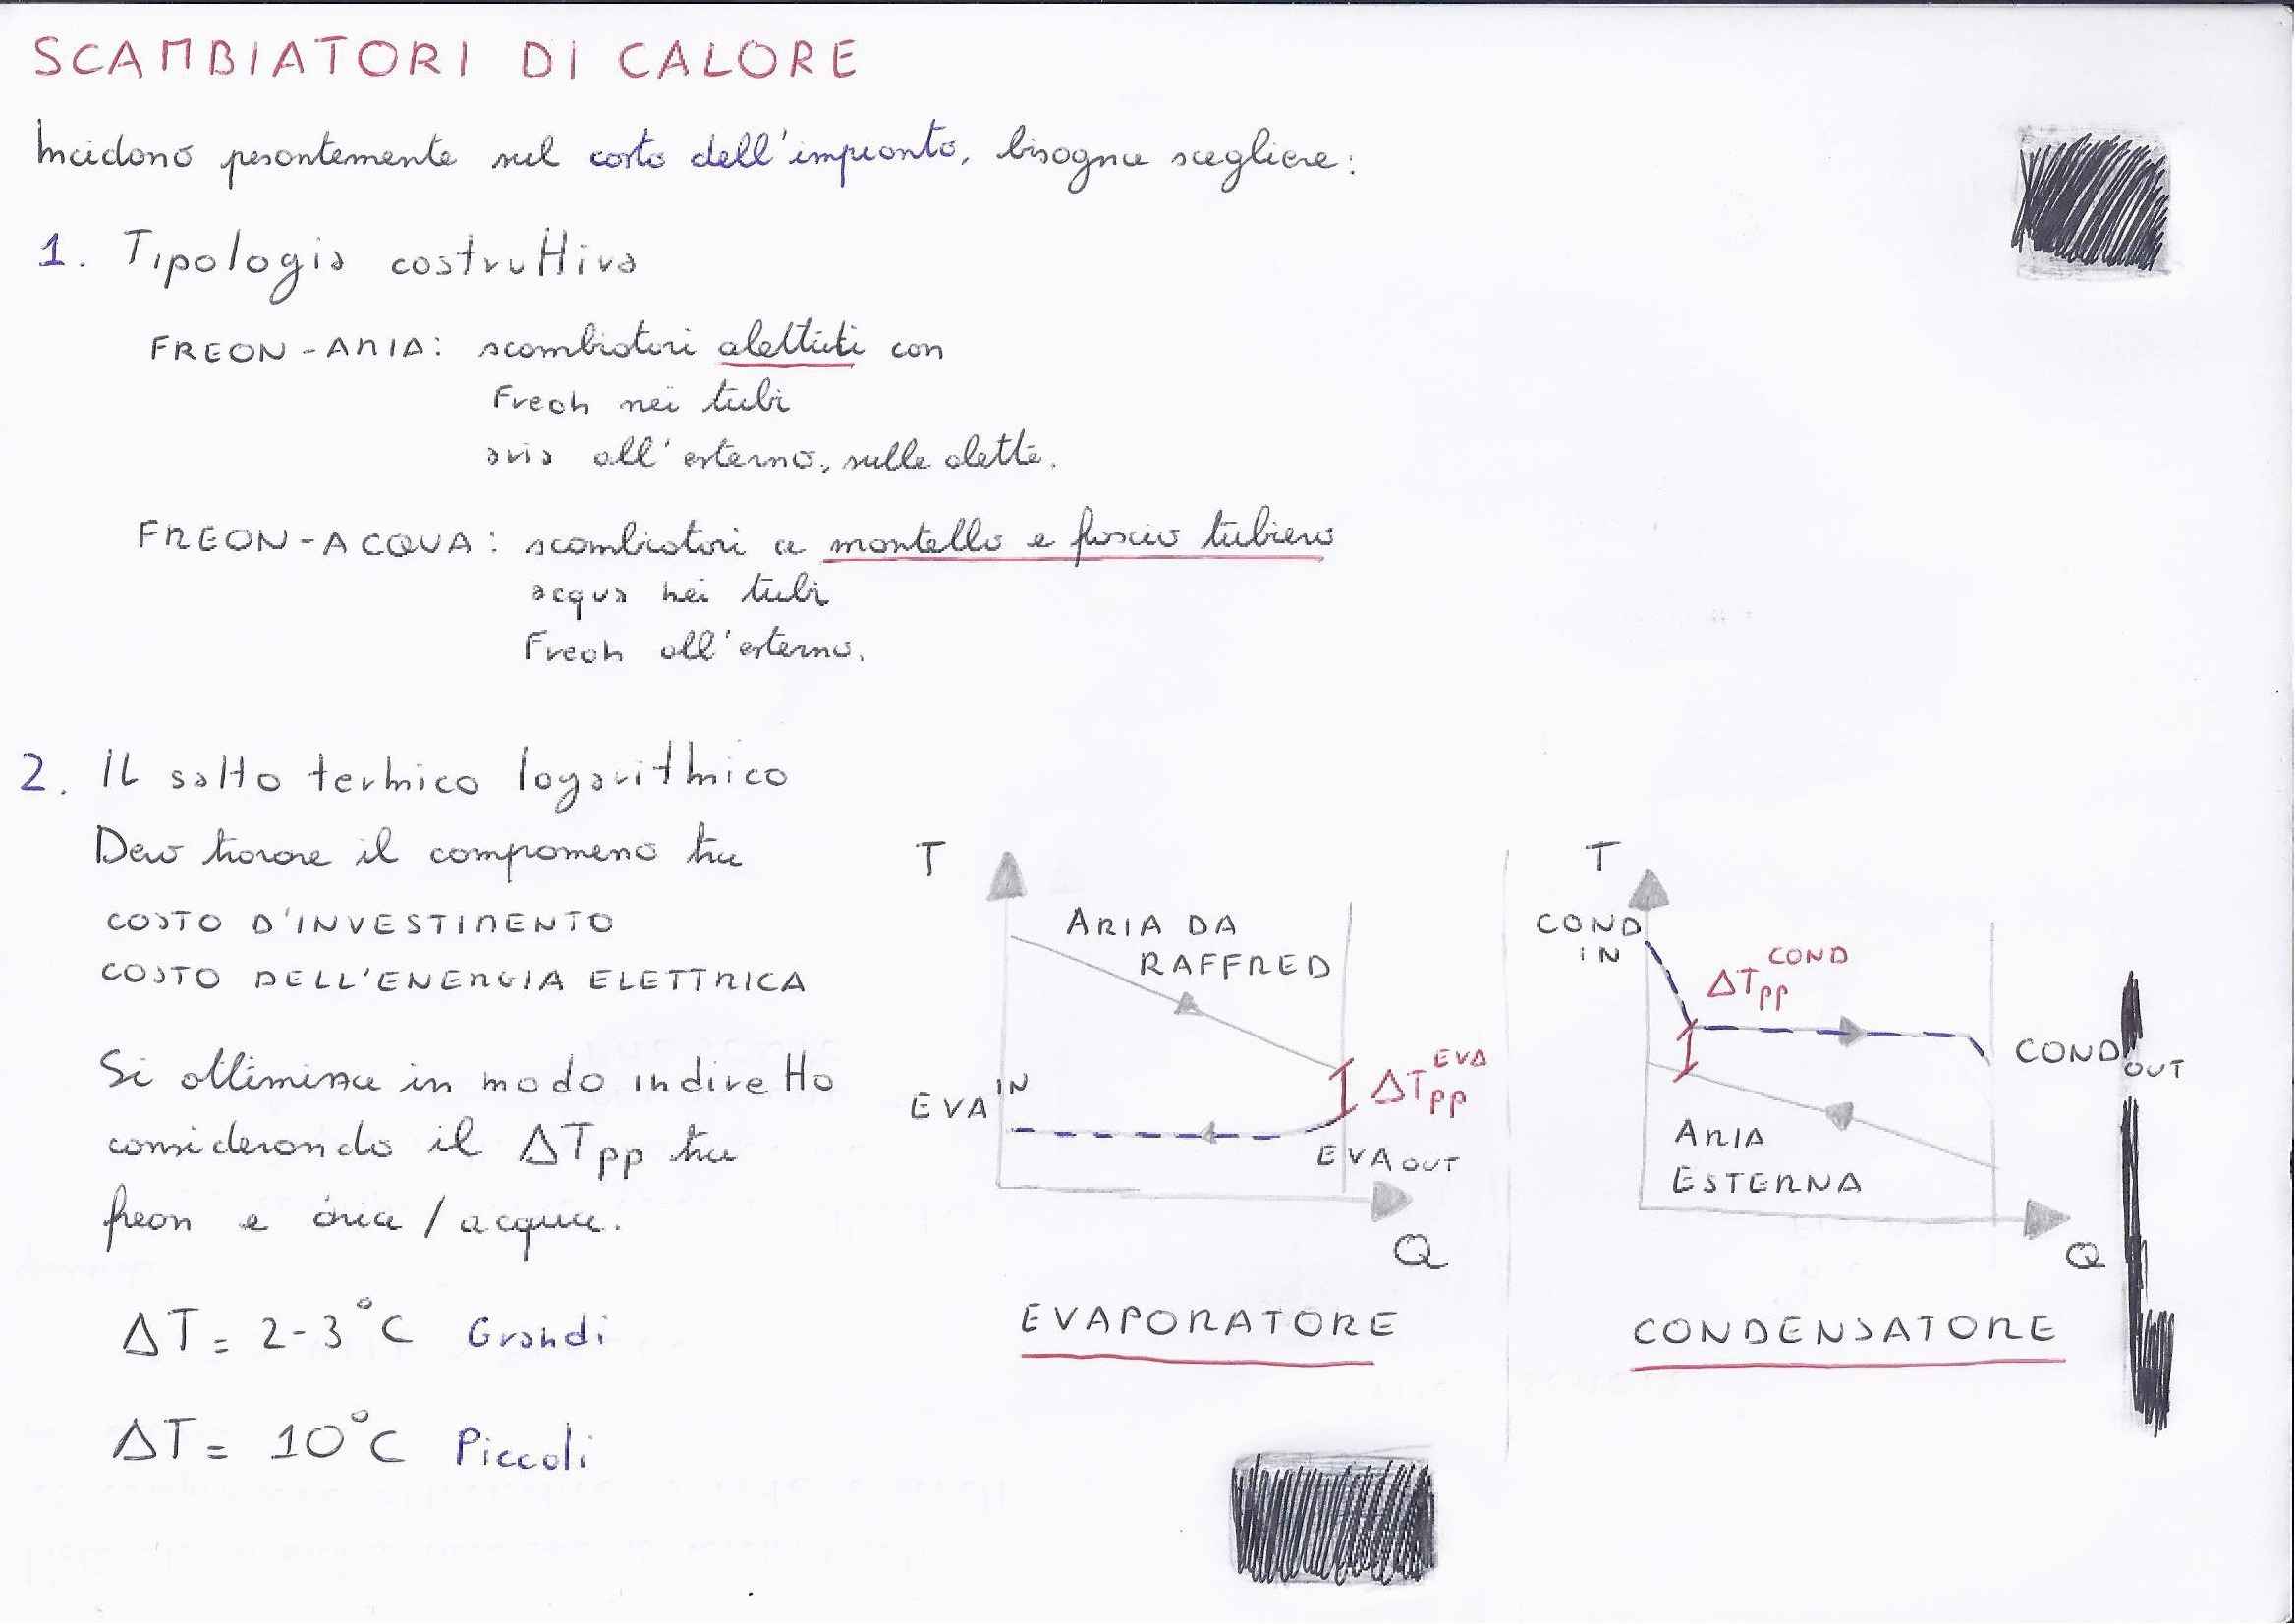 SCAMBIATORI DI CALORE
Incidono pesantemente sul costo dell'impianto, bisogna scegliere:
1. Tipologia costruttiva
FREON-ARIA: scambiatori alettati con
Freon nei tubi
aria all'esterno, sulle alette.
FREON-ACQUA: scambiatori a mantello e fascio tubiero
acqua nei tubi
Freon all'esterno.
2. Il salto termico logarithmico
Devo trovare il compromesso tra
COSTO D'INVESTIMENTO
COSTO DELL'ENERGIA ELETTRICA
Si ottimizza in modo indiretto
considerando il ΔTpp tra
freon e aria/acqua.
ΔT = 2-3°C Grandi
ΔT = 10°C Piccoli
T
ARIA DA
RAFFRED
EVA IN
ΔTpp EVA
EVA OUT
Q
EVAPORATORE
T
COND
IN
ΔTpp COND
COND OUT
ARIA
ESTERNA
Q
CONDENSATORE